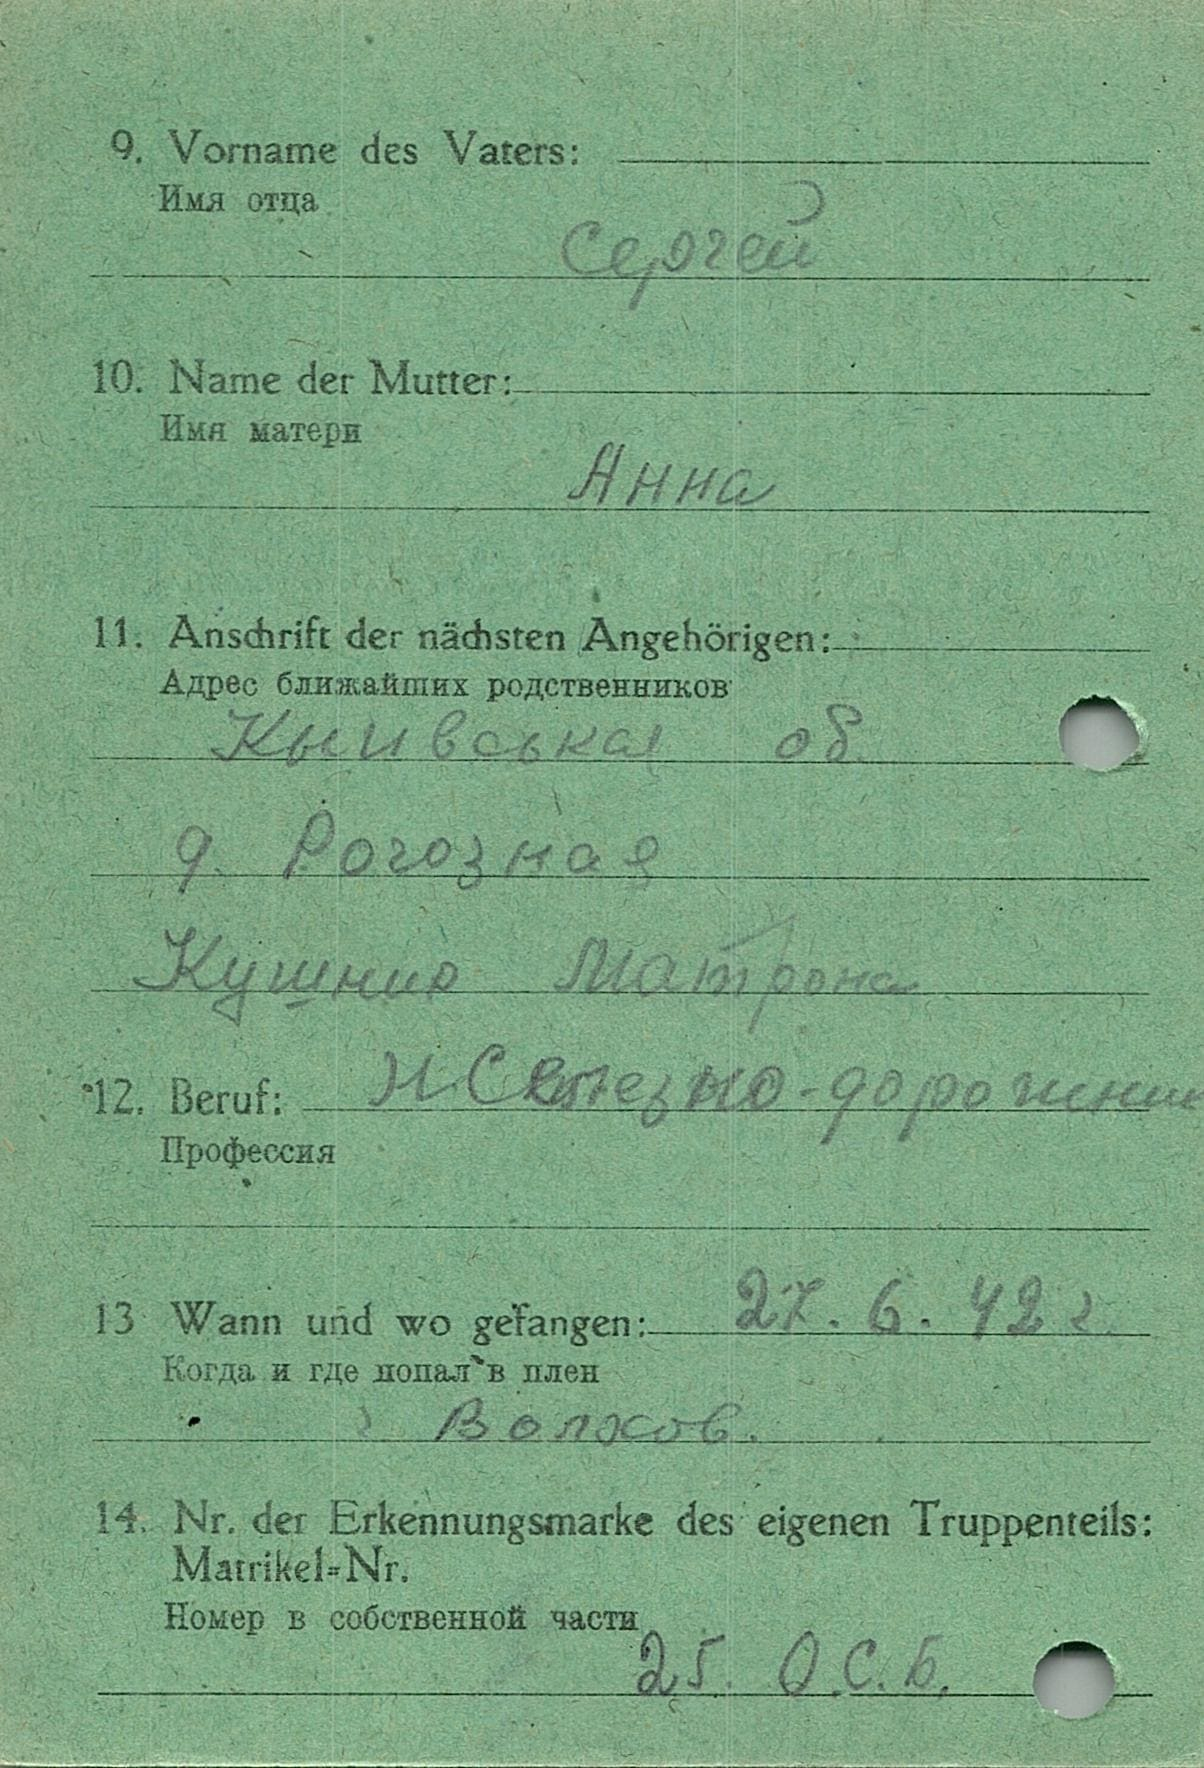 9. Vorname des Vaters:
Имя отца
Сергей
10. Name der Mutter:
Имя матери
Анна
11. Anschrift der nächsten Angehörigen:
Адрес ближайших родственников
Кыивська об.
д. Рогозная
Кушнир Матрона
12. Beruf: -дорожник
Профессия
13 Wann und wo gefangen: 27. 6. 42 г.
Когда и где попал в плен
Волхов.
14. Nr. der Erkennungsmarke des eigenen Truppenteils:
Matrikel-Nr.
Номер в собственной части
25. О.С.Б.